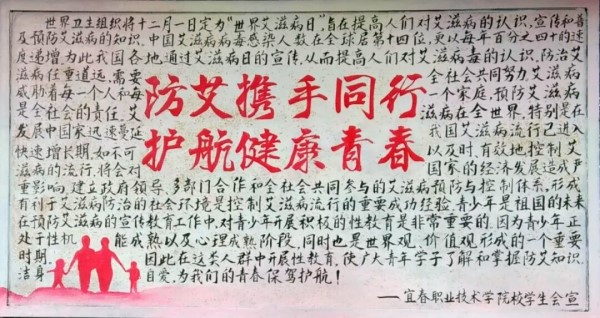 世界卫生组织将十二月一日定为“世界艾滋病日”旨在提高人们对艾滋病的认识.宣传和普
及预防艾滋病的知识.中国艾滋病病毒感染人数在全球居第十四位,更以每年百分之四十的速
度递增.为此我国各地,通过艾滋病日的宣传,从而提高人们对艾滋病毒的认识.防治艾
滋病任重道远,需要 全社会共同努力.艾滋病
威胁着每一个人和每 一个家庭,预防艾滋病
是全社会的责任.艾 滋病在全世界,特别是在
发展中国家迅速蔓延 我国艾滋病流行已进入
快速增长期,如不可 以及时,有效地控制艾
滋病的流行,将会对 国家的经济发展造成严
防艾携手同行
护航健康青春
重影响,建立政府领导,多部门合作和全社会共同参与的艾滋病预防与控制体系,形成
有利于艾滋病防治的社会环境是控制艾滋病流行的重要成功经验.青少年是祖国的未来
在预防艾滋病的宣传教育工作中,对青少年开展积极的性教育是非常重要的.因为青少年正
处于性机 能成熟以及心理成熟阶段,同时也是世界观,价值观形成的一个重要
时期. 因此在这类人群中开展性教育,使广大青年学子了解和掌握防艾知识.
洁身 自爱,为我们的青春保驾护航!
——宜春职业技术学院校学生会宣